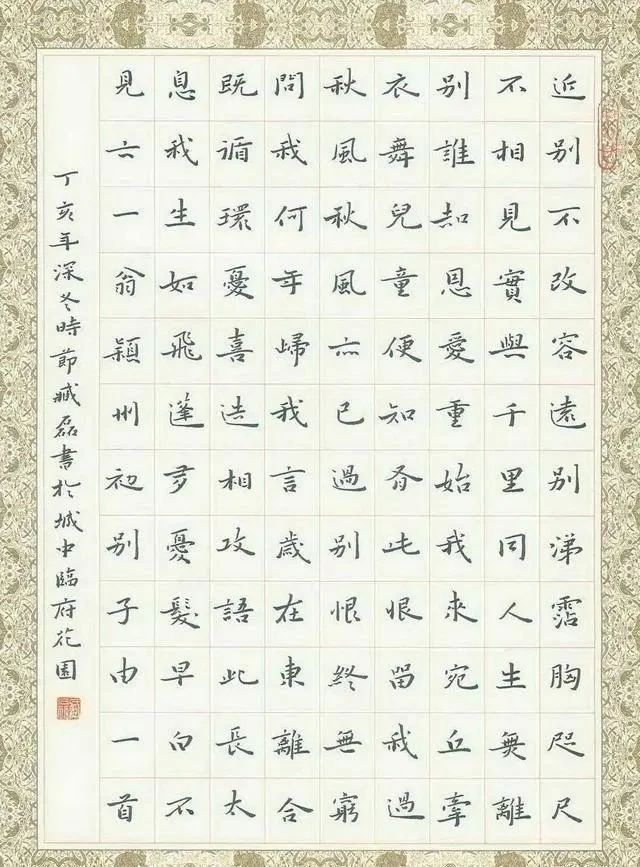 近別不改容遠別涕霑胸咫尺
不相見實與千里同人生無離
別誰知恩愛重始我來宛丘牽
衣舞兒童便知有此恨留我過
秋風秋風亦已過別恨終無窮
問我何年歸我言歲在東離合
既循環憂喜迭相攻語此長太
息我生如飛蓬多憂髮早白不
見六一翁潁州初別子由一首
丁亥年深冬時節臧磊書於城中臨府花園